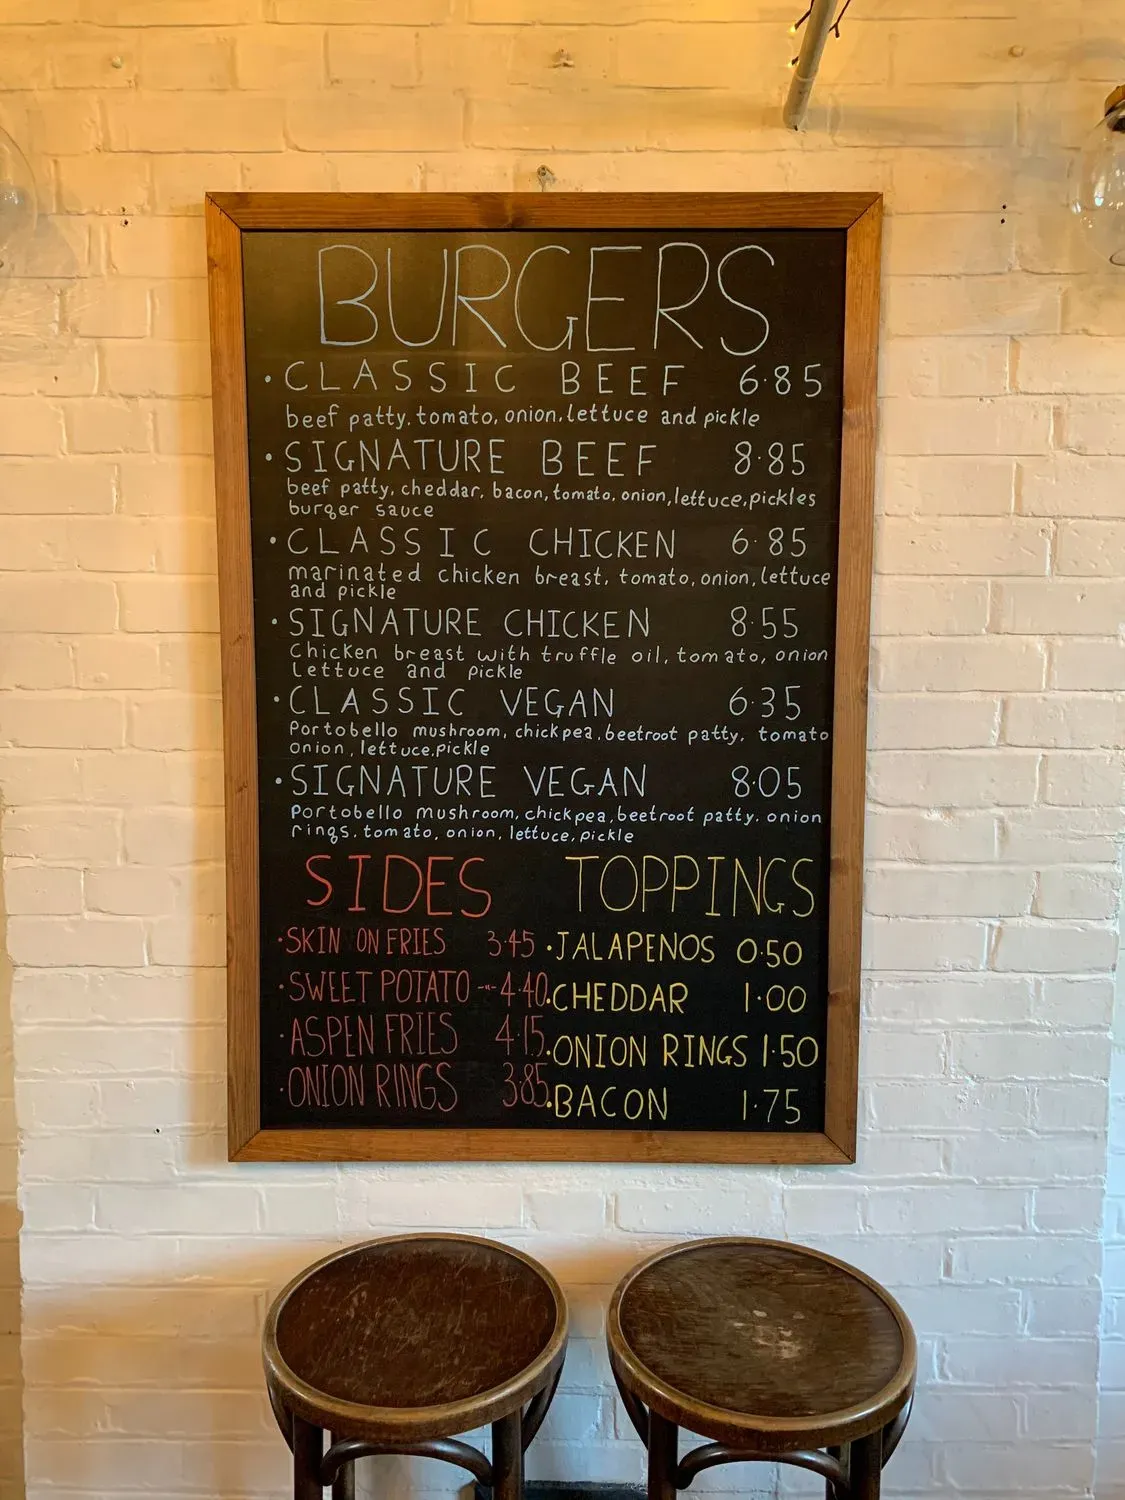 BURGERS
• CLASSIC BEEF 6·85
beef patty, tomato, onion, lettuce and pickle
• SIGNATURE BEEF 8·85
beef patty, cheddar, bacon, tomato, onion, lettuce, pickles
burger sauce
• CLASSIC CHICKEN 6·85
marinated chicken breast, tomato, onion, lettuce
and pickle
• SIGNATURE CHICKEN 8·55
Chicken breast with truffle oil, tomato, onion
Lettuce and pickle
• CLASSIC VEGAN 6·35
Portobello mushroom, chickpea, beetroot patty, tomato
onion, lettuce, pickle
• SIGNATURE VEGAN 8·05
Portobello mushroom, chickpea, beetroot patty, onion
rings, tomato, onion, lettuce, pickle
SIDES
• SKIN ON FRIES 3·45
• SWEET POTATO -"- 4·40
• ASPEN FRIES 4·15
• ONION RINGS 3·85
TOPPINGS
• JALAPENOS 0·50
• CHEDDAR 1·00
• ONION RINGS 1·50
• BACON 1·75